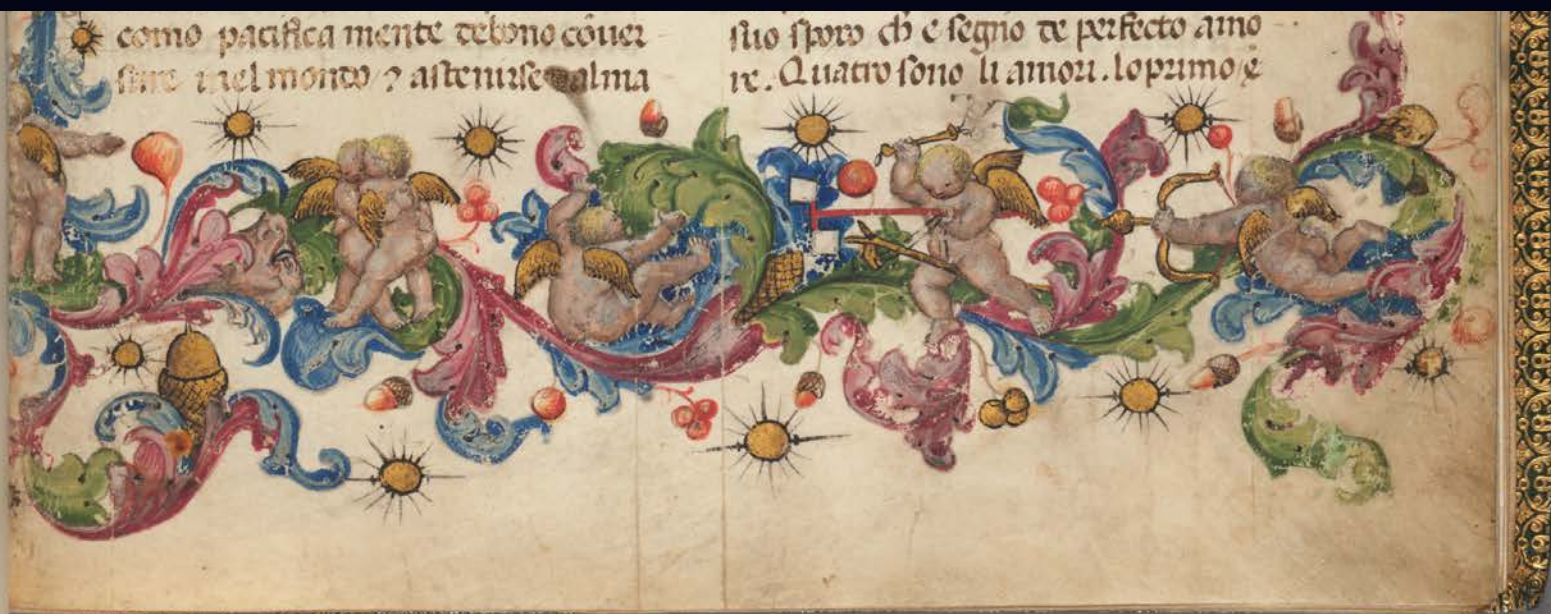 como pacifica mente debono cōuer
sare i nel mondo ⁊ astenirse
suo sposo ch e segno de perfecto amo
re. Quatro sono li amori. lo primo e